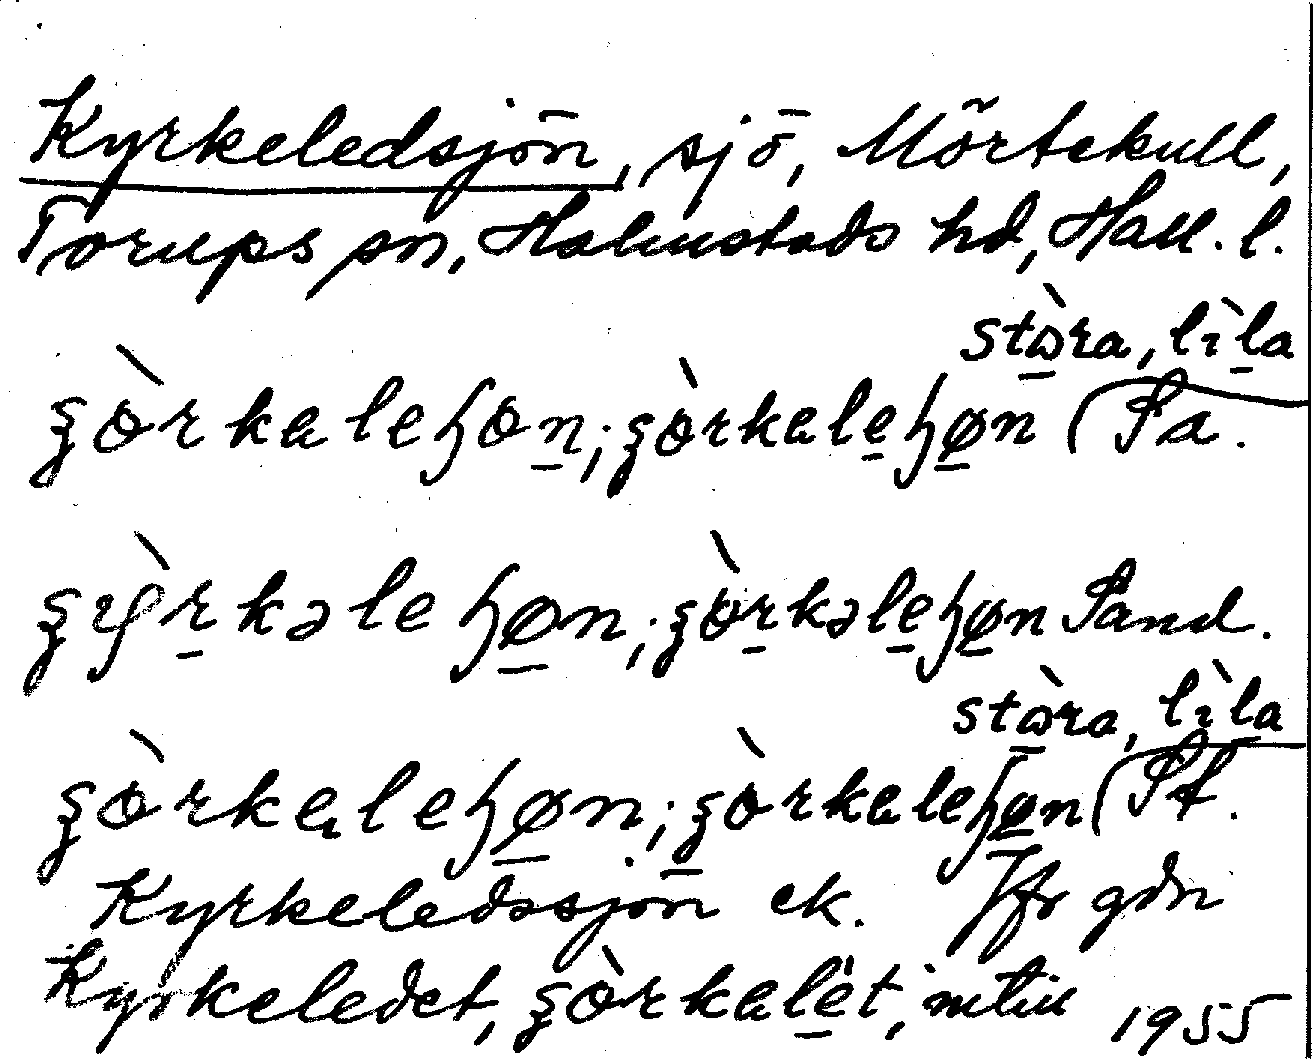 Kyrkeledsjön, sjö, Mörtekull,
Torups sn, Halmstads hd, Hall. l.
stòra, lìla
ʒòrkaleɧon; ʒòrkaleɧøn (Pa.
ʒỳrkəleɧøn; ʒòrkəleɧøn Sand.
stòra, lìla
ʒòrkaleɧøn; ʒòrkaleɧøn (Pf.
Kyrkeledssjön ek. Jfr gdn
Kyrkeledet, ʒòrkalet, 1955